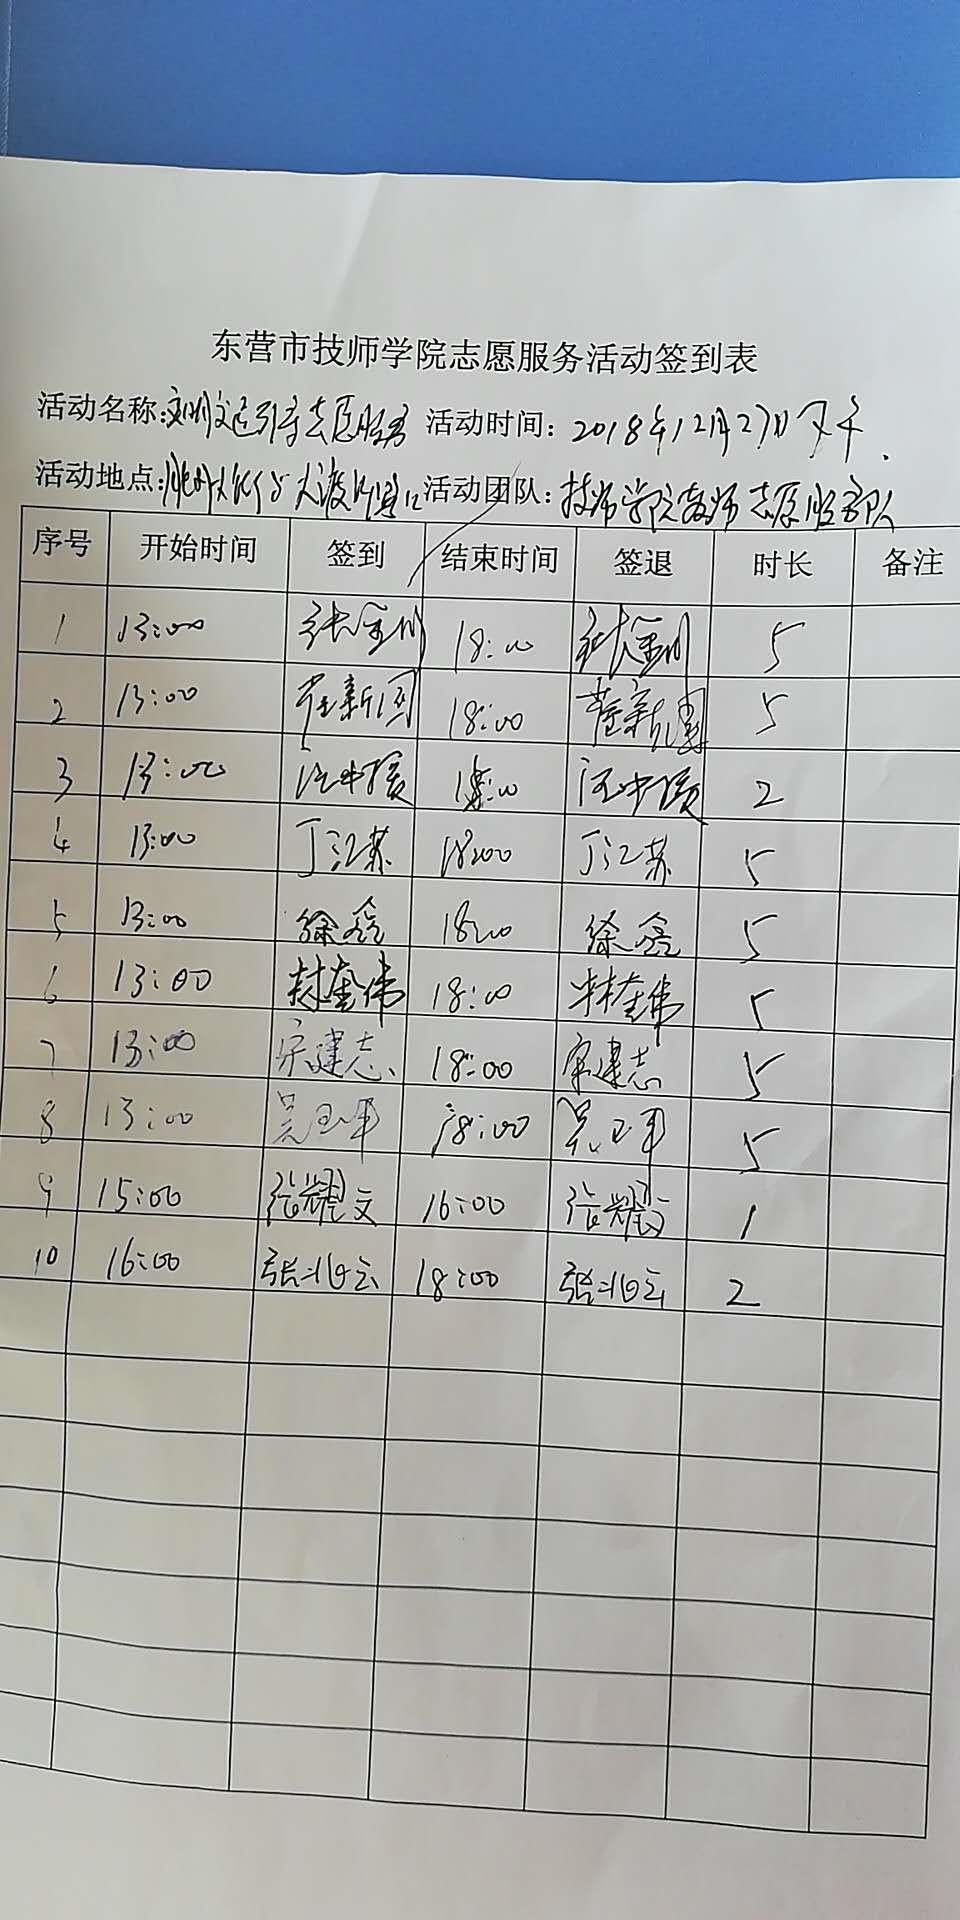 东营市技师学院志愿服务活动签到表
活动名称:文明交通引导志愿服务 活动时间: 2018年12月27日下午.
活动地点: 大渡河路口 活动团队: 技师学院教师志愿服务队
序号 开始时间 签到 结束时间 签退 时长 备注
1 13:00 18:00 5
2 13:00 18:00 5
3 13:00 2
4 13:00 丁江苏 18:00 丁江苏 5
5 13:00 徐鑫 18:00 徐鑫 5
6 13:00 林奎伟 18:00 林奎伟 5
7 13:00 宋建志 18:00 宋建志 5
8 13:00 吴玉军 18:00 吴玉军 5
9 15:00 张耀文 16:00 张耀文 1
10 16:00 18:00 2